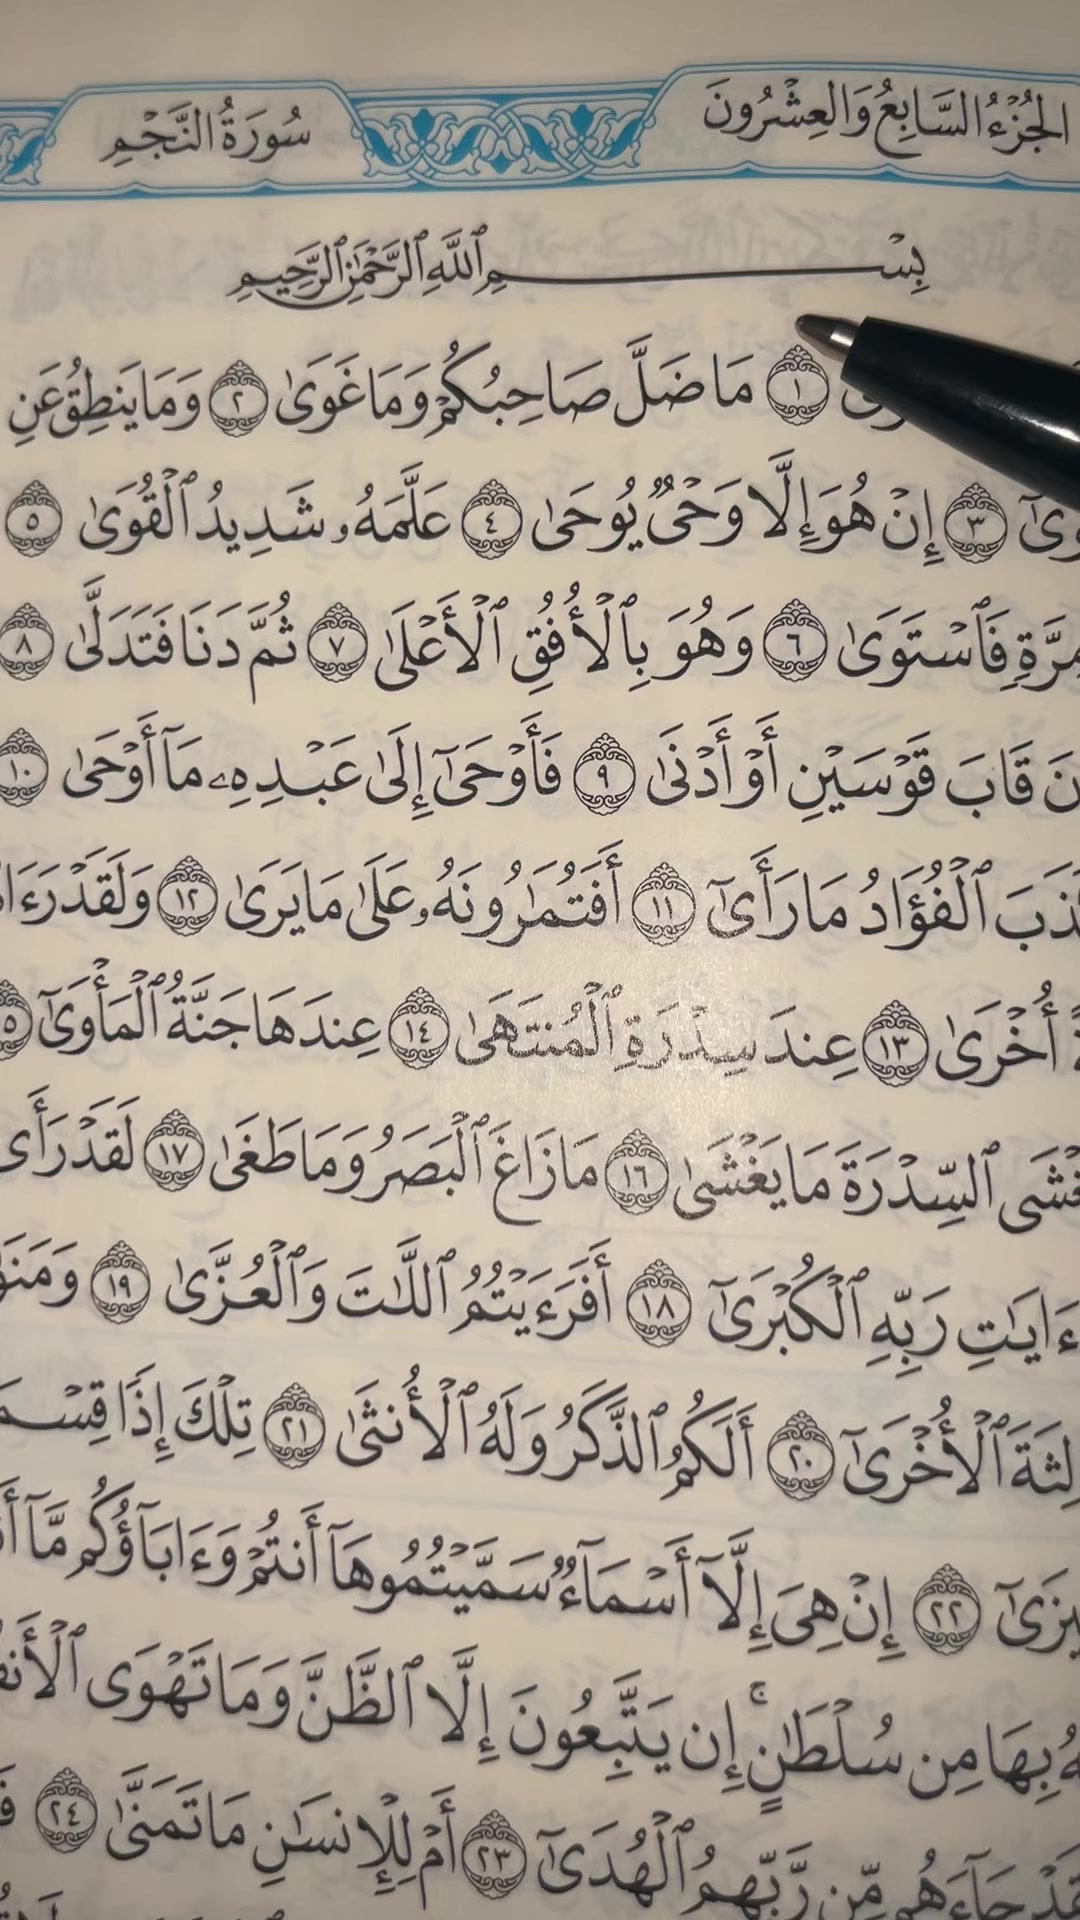 الجُزْءُ السَّابِعُ وَالعِشْرُونَ
سُورَةُ النَّجْمِ
بِسْمِ ٱللَّهِ ٱلرَّحْمَٰنِ ٱلرَّحِيمِ
١ مَا ضَلَّ صَاحِبُكُمْ وَمَا غَوَىٰ ٢ وَمَا يَنطِقُ عَنِ
٣ إِنْ هُوَ إِلَّا وَحْىٌ يُوحَىٰ ٤ عَلَّمَهُۥ شَدِيدُ ٱلْقُوَىٰ ٥
مِرَّةٍ فَٱسْتَوَىٰ ٦ وَهُوَ بِٱلْأُفُقِ ٱلْأَعْلَىٰ ٧ ثُمَّ دَنَا فَتَدَلَّىٰ ٨
قَابَ قَوْسَيْنِ أَوْ أَدْنَىٰ ٩ فَأَوْحَىٰٓ إِلَىٰ عَبْدِهِۦ مَآ أَوْحَىٰ ١٠
ٱلْفُؤَادُ مَا رَأَىٰٓ ١١ أَفَتُمَٰرُونَهُۥ عَلَىٰ مَا يَرَىٰ ١٢ وَلَقَدْ
أُخْرَىٰ ١٣ عِندَ سِدْرَةِ ٱلْمُنتَهَىٰ ١٤ عِندَهَا جَنَّةُ ٱلْمَأْوَىٰٓ
ٱلسِّدْرَةَ مَا يَغْشَىٰ ١٦ مَا زَاغَ ٱلْبَصَرُ وَمَا طَغَىٰ ١٧ لَقَدْ رَأَىٰ
ءَايَٰتِ رَبِّهِ ٱلْكُبْرَىٰٓ ١٨ أَفَرَءَيْتُمُ ٱللَّٰتَ وَٱلْعُزَّىٰ ١٩
ٱلْأُخْرَىٰٓ ٢٠ أَلَكُمُ ٱلذَّكَرُ وَلَهُ ٱلْأُنثَىٰ ٢١ تِلْكَ إِذًا
٢٢ إِنْ هِىَ إِلَّآ أَسْمَآءٌ سَمَّيْتُمُوهَآ أَنتُمْ وَءَابَآؤُكُم مَّآ
بِهَا مِن سُلْطَٰنٍ ۚ إِن يَتَّبِعُونَ إِلَّا ٱلظَّنَّ وَمَا تَهْوَى
جَآءَهُم مِّن رَّبِّهِمُ ٱلْهُدَىٰٓ ٢٣ أَمْ لِلْإِنسَٰنِ مَا تَمَنَّىٰ ٢٤